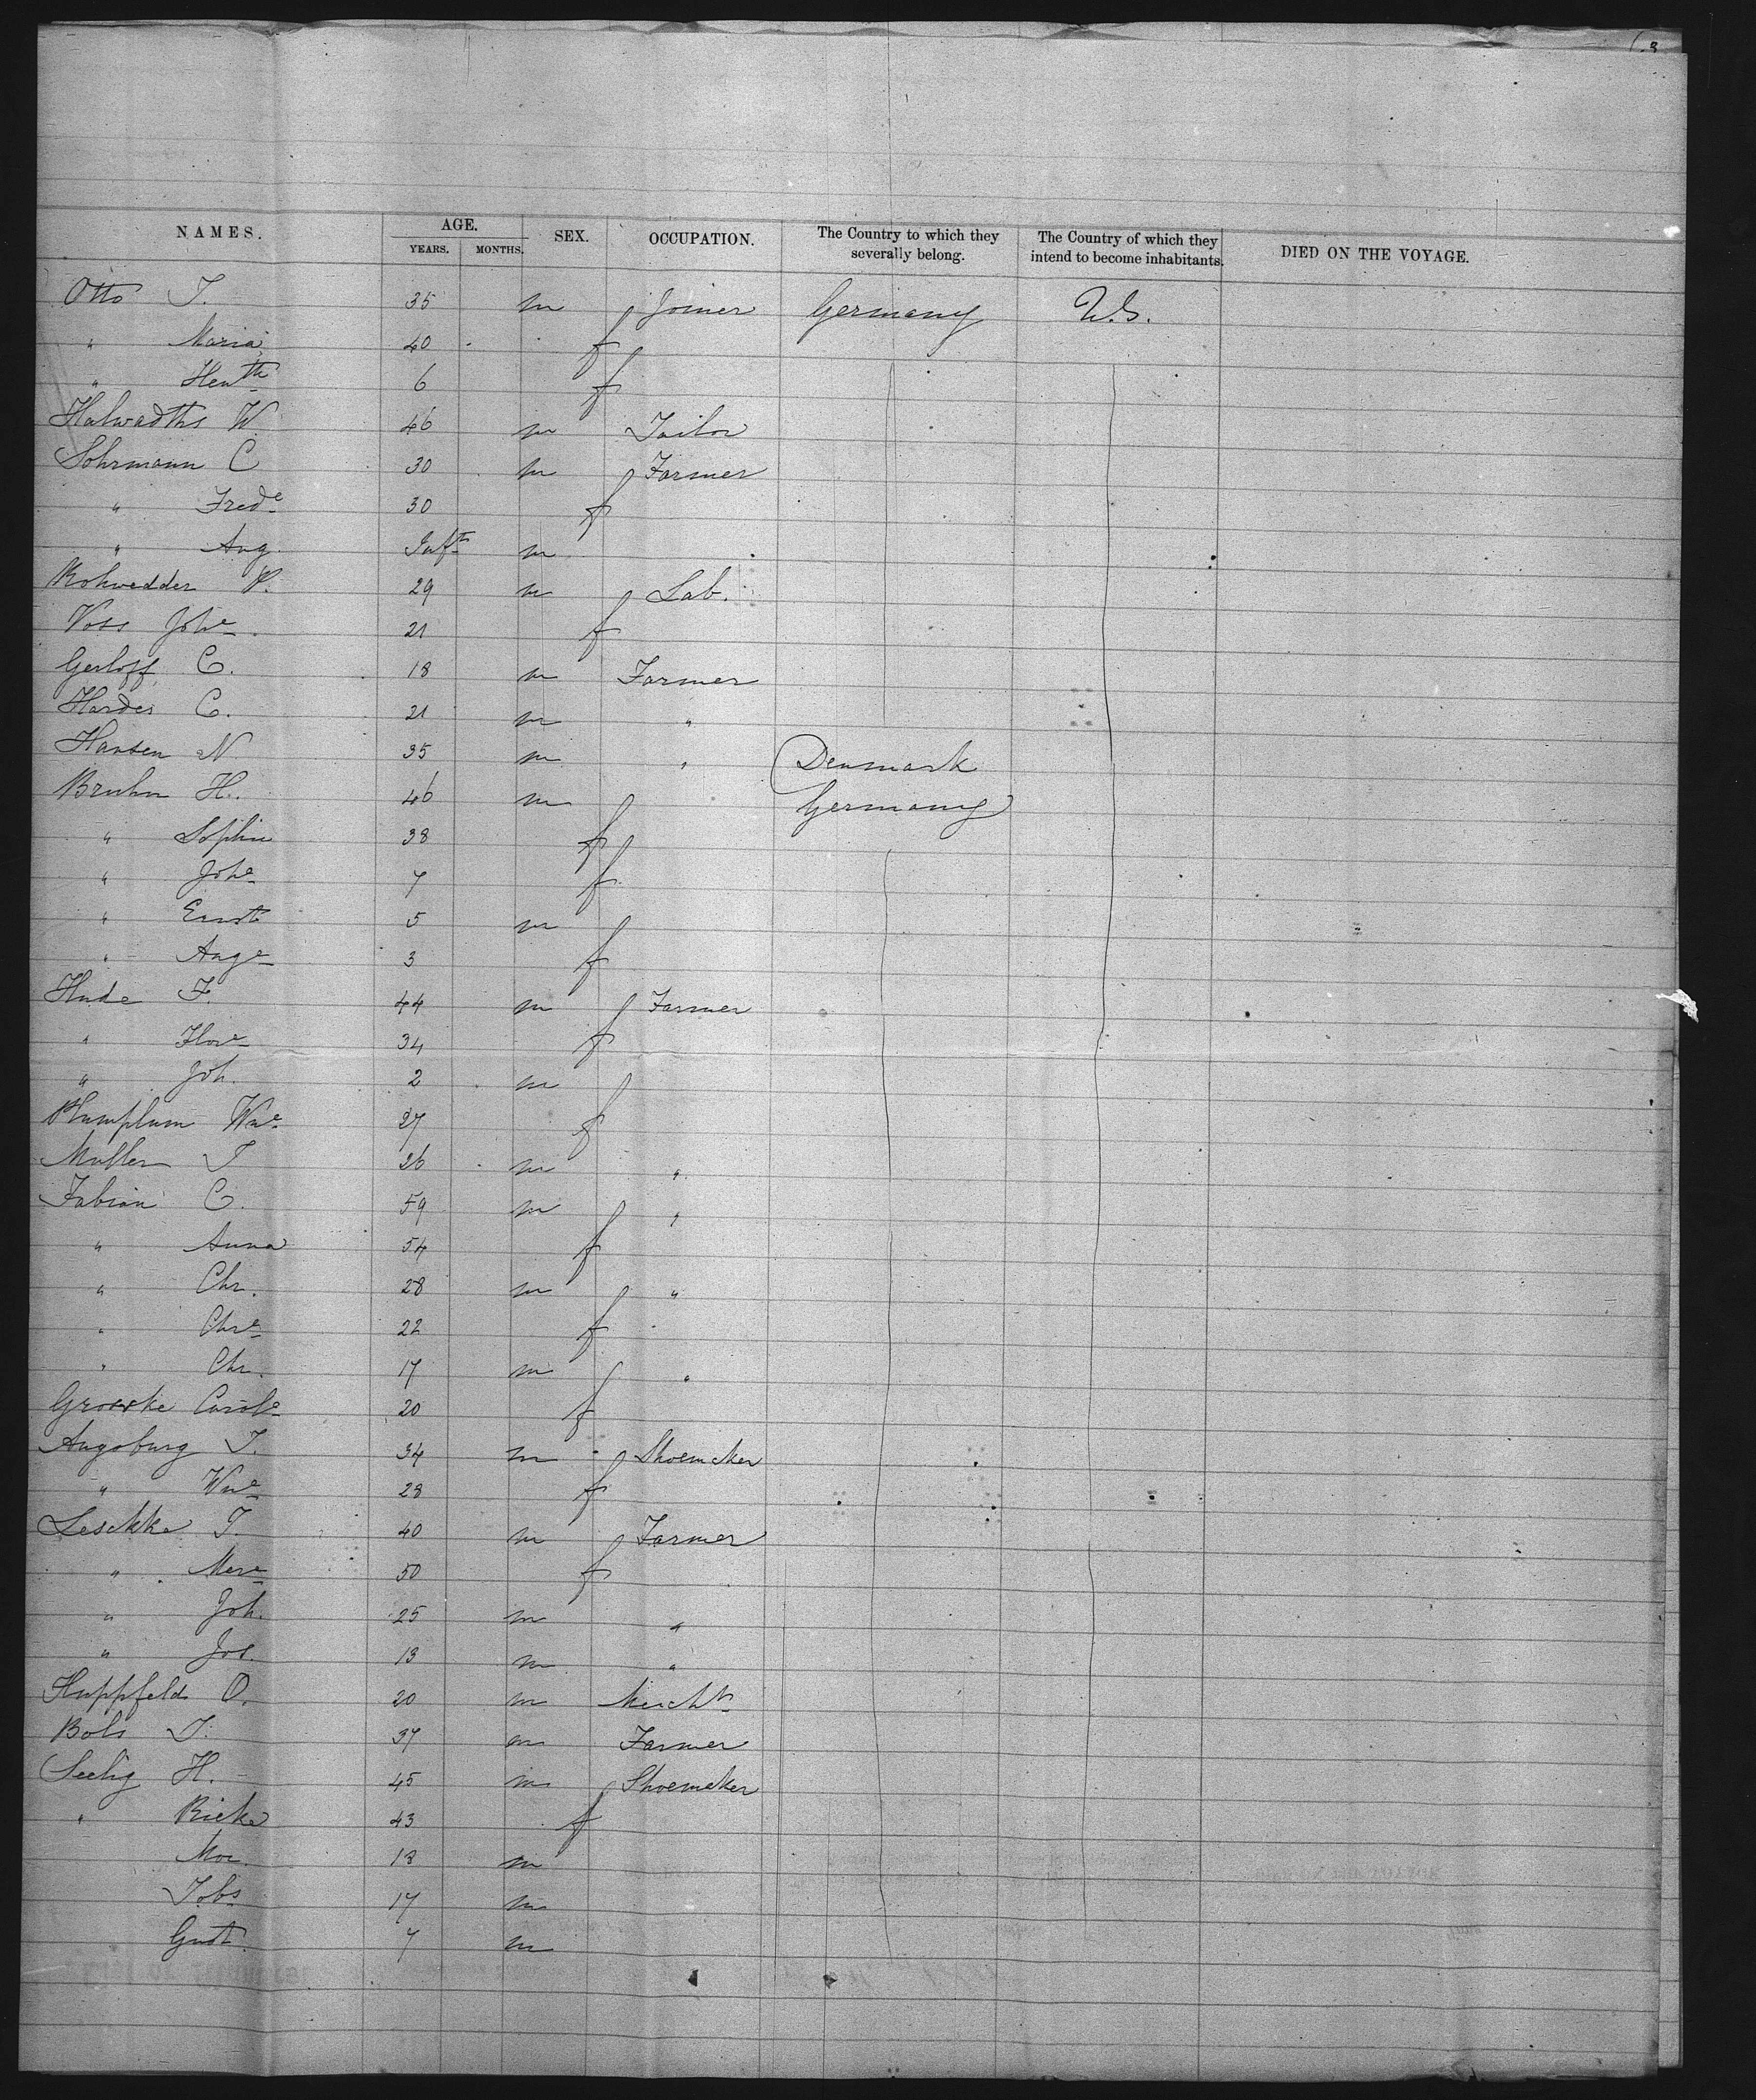 NAMES. AGE. SEX. OCCUPATION. The Country to which they severally belong. The Country of which they intend to become inhabitants. DIED ON THE VOYAGE.
YEARS. MONTHS.
Otto 35 m Joiner Germany U.S.
" Maria 40 f
" Hentte 6 f
W. 46 m Tailor
Sohrmann C 30 m Farmer
" Frede 30 f
" Aug. Inft m
Rohwedder P. 29 m Lab.
Voss Johe 21 f
Gerloff C. 18 m Farmer
Hardes C. 21 m "
Hansen N 35 m " Denmark
Bruhn H. 46 m Germany
" Sophie 38 f
" Johe 7 f
" Ernst 5 m
" Auge 3 f
Hude F. 44 m Farmer
" 34 f
" Joh. 2 m
Wme 27 f
Muller 26 m "
Fabian C. 59 m "
" Anna 54 f
" Chr. 28 m "
" Chre 22 f
" Chr. 17 m "
Carole 20 f
Augsburg 34 m Shoemaker
" Wme 28 f
Leschke 40 m Farmer
" 50 f
" Joh. 25 m "
" Jos. 13 m "
Huppfeld O. 20 m Mercht
Bols 37 m Farmer
Seelig H. 45 m Shoemaker
" Rieke 43 f
18 m
17 m
Gust. 7 m